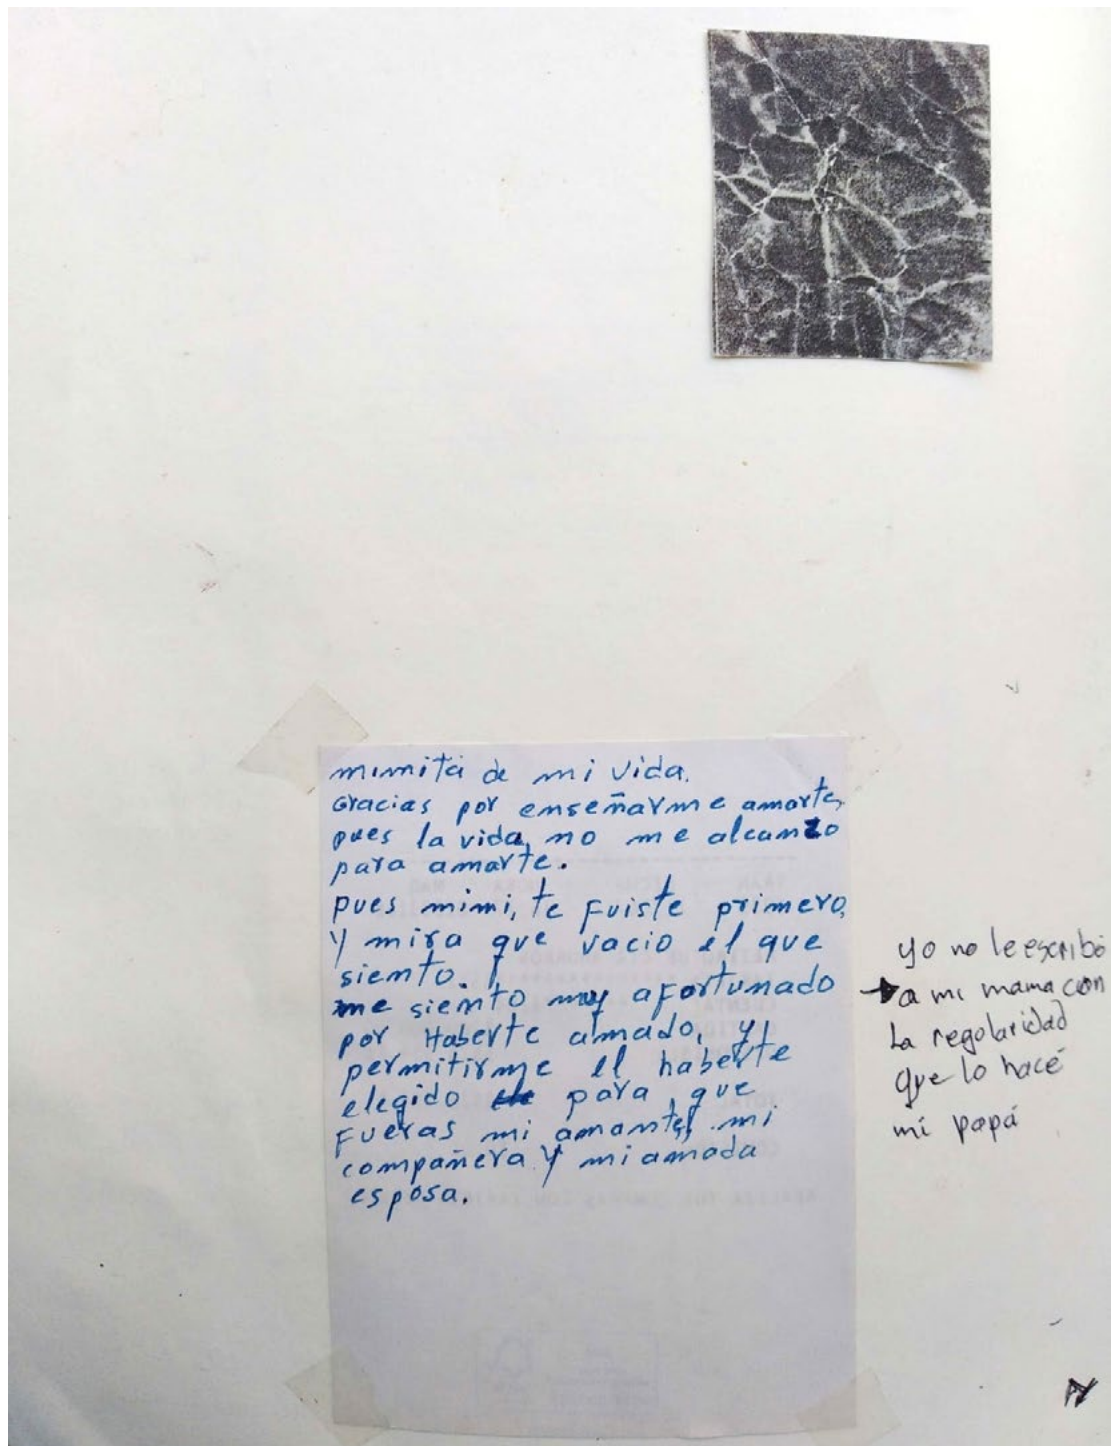 mimita de mi vida.
Gracias por enseñarme amarte,
pues la vida, no me alcanzo
para amarte.
pues mimi, te fuiste primero,
y mira que vacio el que
siento.
me siento muy afortunado
por Haberte amado, y
permitirme el haberte
elegido para que
fueras mi amante, mi
compañera y mi amada
esposa.
yo no le escribo
a mi mama con
La regolaridad
que lo hace
mi papá